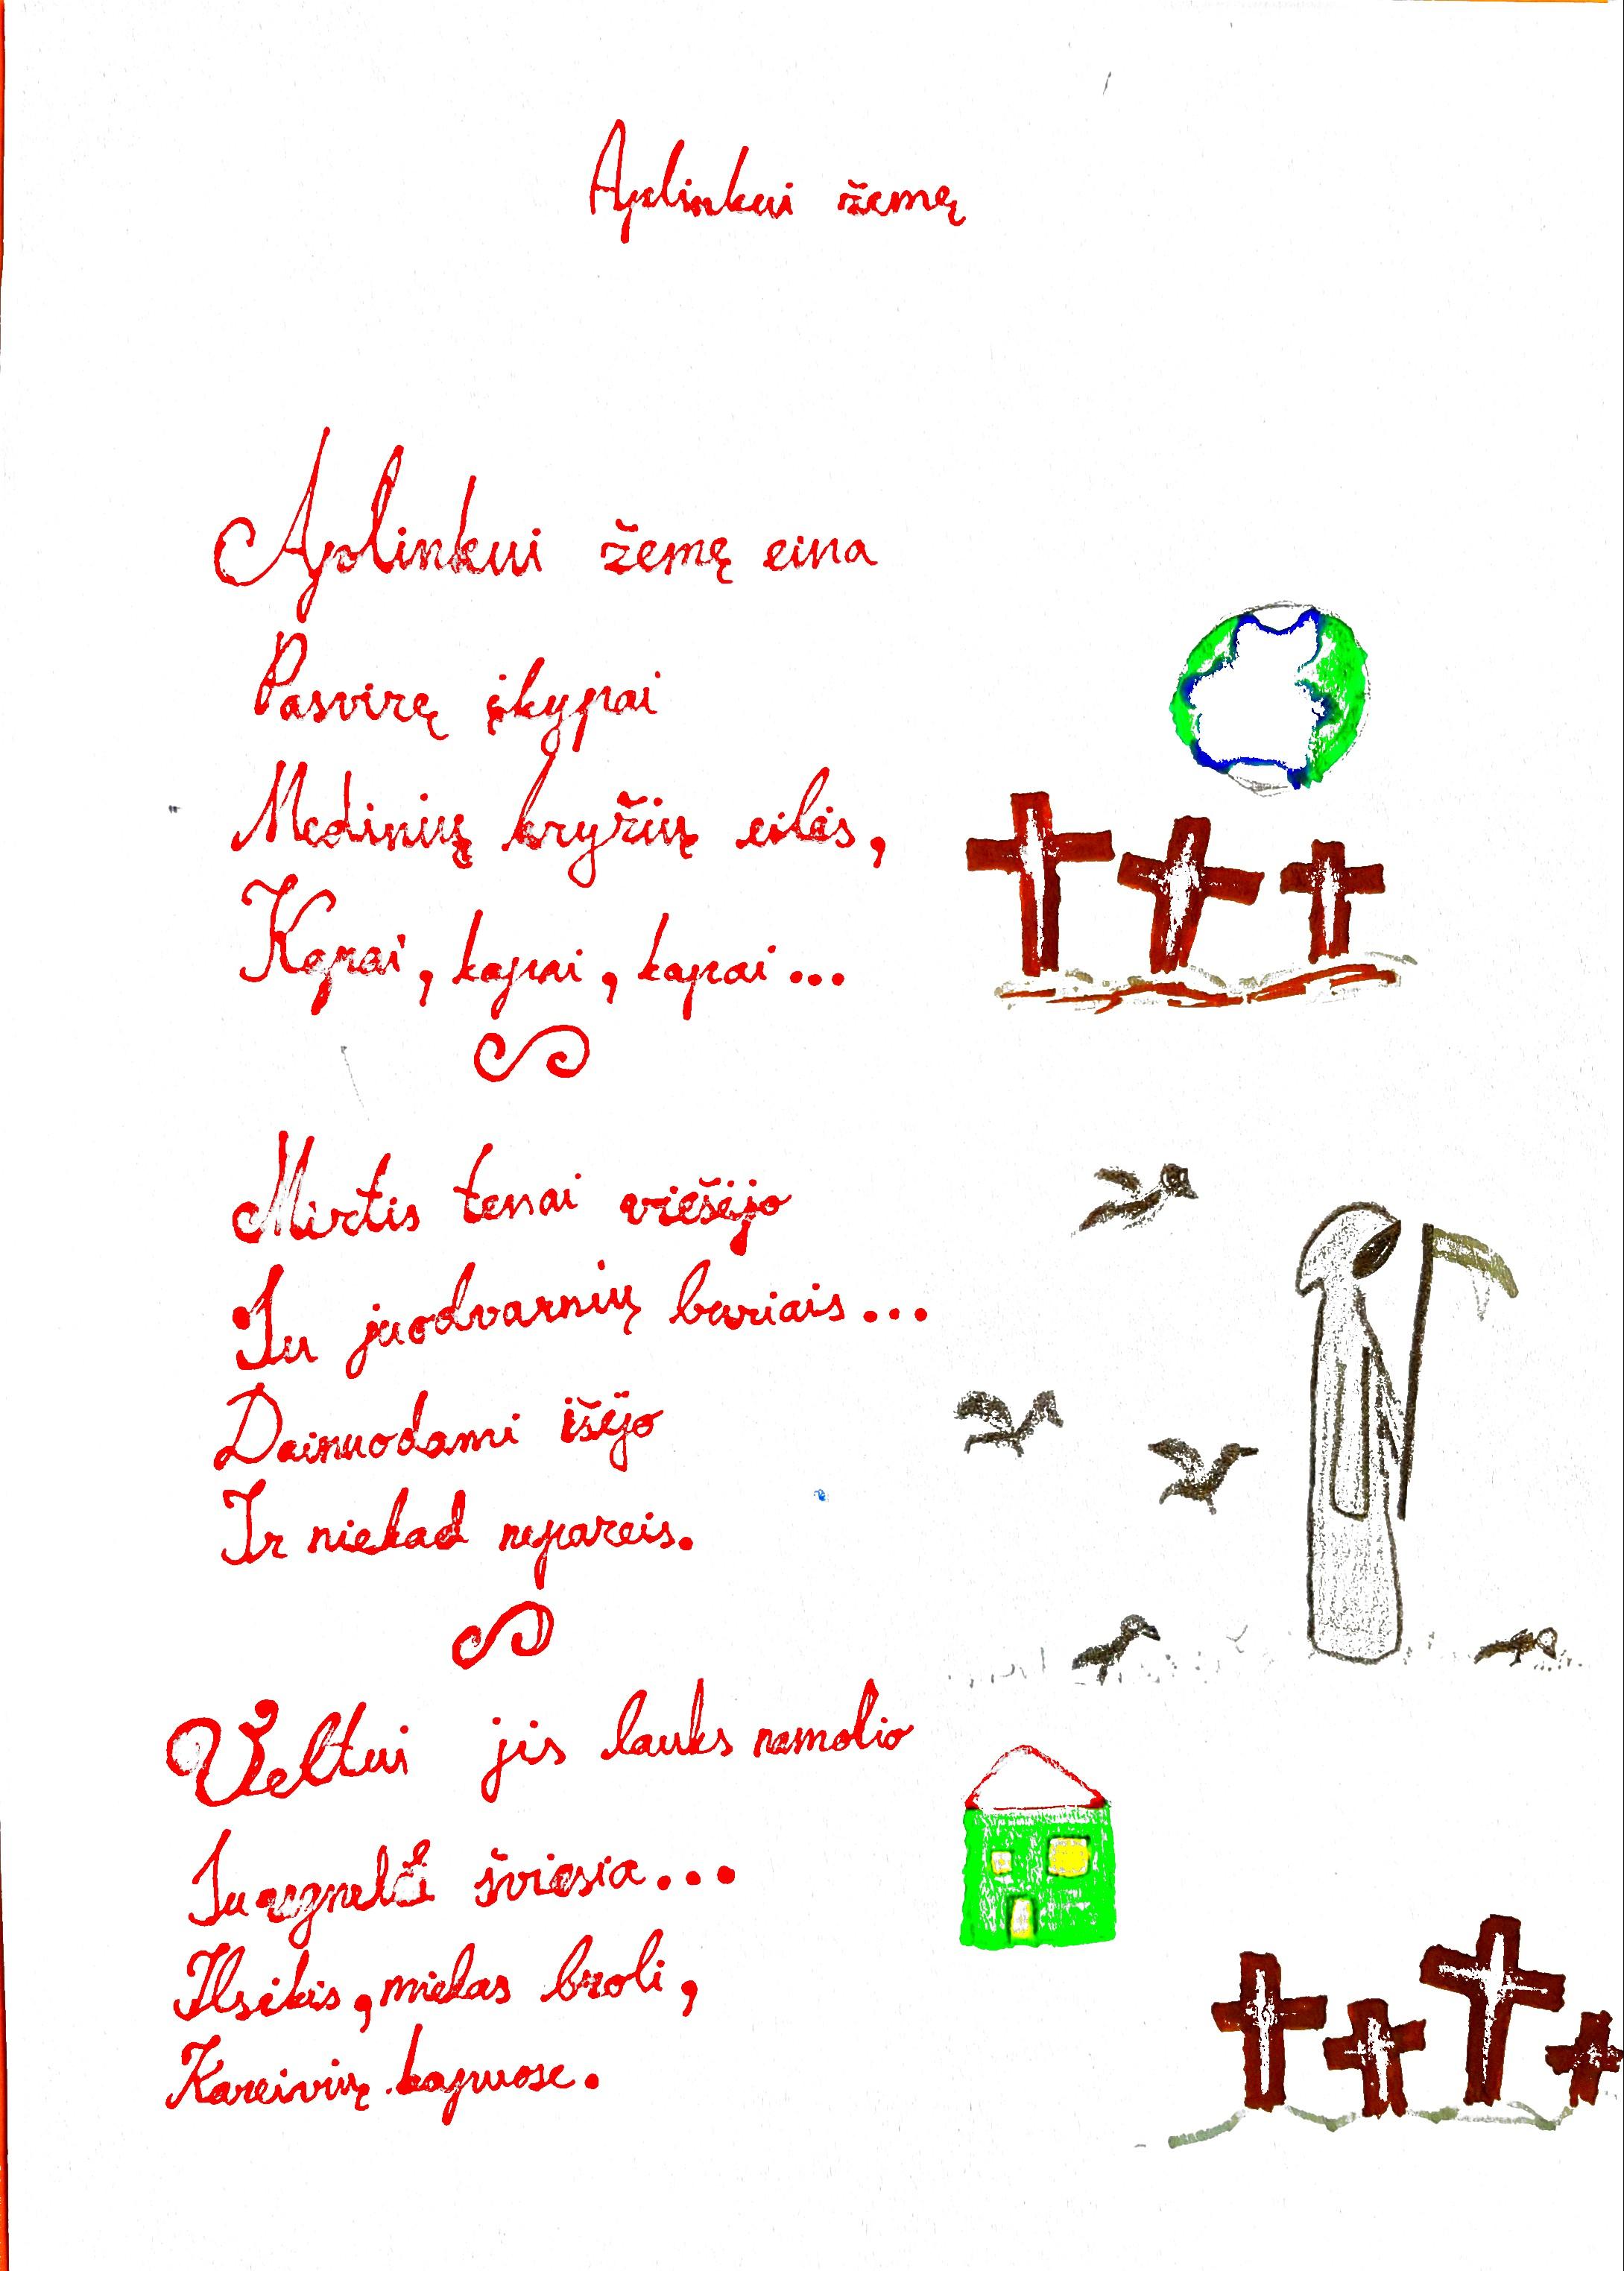 Aplinkui žemę
Aplinkui žemę eina
Pasvirę įkypai
Medinių kryžių eilės,
Kapai, kapai, kapai...
Mirtis tenai viešėjo
Su juodvarnių bariais...
Dainuodami išėjo
Ir niekad nepareis.
Veltui jis lauks namolio
Su ugnele šviesia...
Ilsėkis, mielas broli,
Kareivių kapuose.